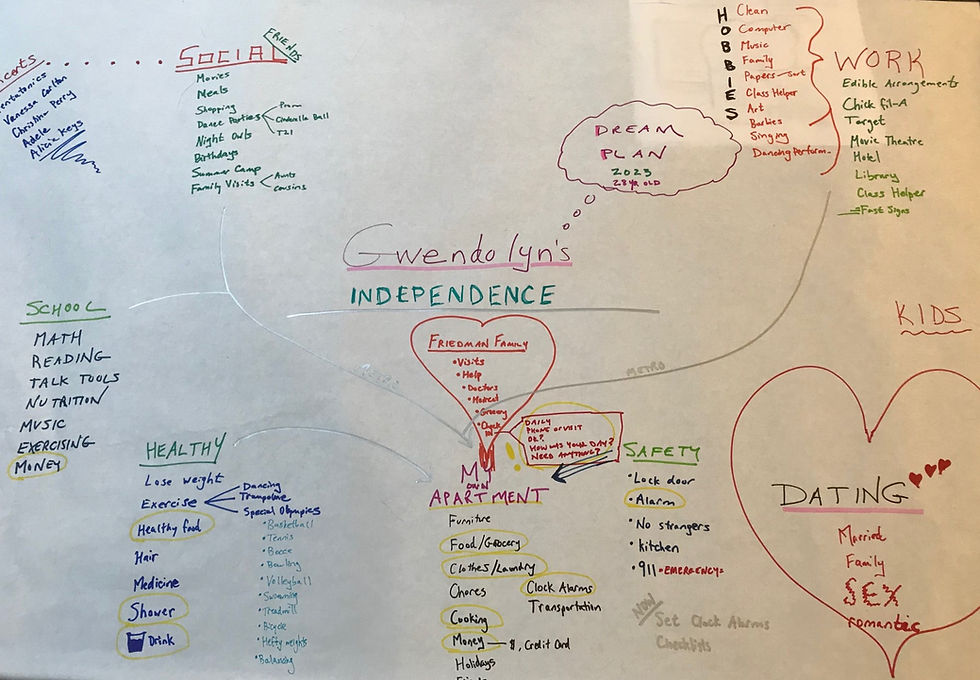 SOCIAL
FRIENDS
Movies
Meals
Shopping
Dance Parties
Prom
Cinderella Ball
T21
Night Owls
Birthdays
Summer Camp
Family Visits
Aunts
cousins
Vanessa Carlton
Christina Perry
Adele
Alicia Keys
HOBBIES
Clean
Computer
Music
Family
Papers - Sort
Class Helper
Art
Barbies
Singing
Dancing Perform..
WORK
Edible Arrangements
Chick fil-A
Target
Movie Theatre
Hotel
Library
Class Helper
Fast Signs
DREAM
PLAN
2023
28 YR OLD
Gwendolyn's
INDEPENDENCE
SCHOOL
MATH
READING
TALK TOOLS
NUTRITION
MUSIC
EXERCISING
MONEY
FRIEDMAN FAMILY
• Visits
• Help
• Doctors
• Medical
• Grocery
• Check
IN
DAILY
PHONE OR VISIT
OK?
HOW WAS YOUR DAY?
NEED ANYTHING?
METRO
METRO
HEALTHY
Lose weight
Exercise
Dancing
Trampoline
Special Olympics
• Basketball
• Tennis
• Bocce
• Bowling
• Volleyball
• Swimming
• Treadmill
• Bicycle
• Hefty weights
• Balancing
Healthy food
Hair
Medicine
Shower
Drink
MY
OWN
APARTMENT
Furniture
Food/Grocery
Clothes/Laundry
Chores
Clock Alarms
Transportation
Cooking
Money — $, Credit Card
Holidays
SAFETY
• Lock door
• Alarm
• No strangers
• kitchen
• 911 • EMERGENCY
NOW
Set Clock Alarms
Checklists
KIDS
DATING
Married
Family
SEX
romantic